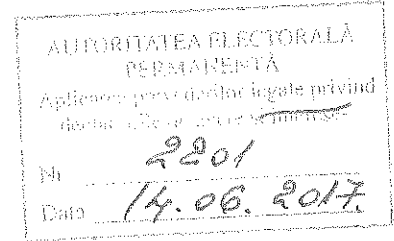 AUTORITATEA ELECTORALĂ
PERMANENTĂ
Aplicarea prevederilor legale privind
Nr. 2201
Data 14.06.2017.